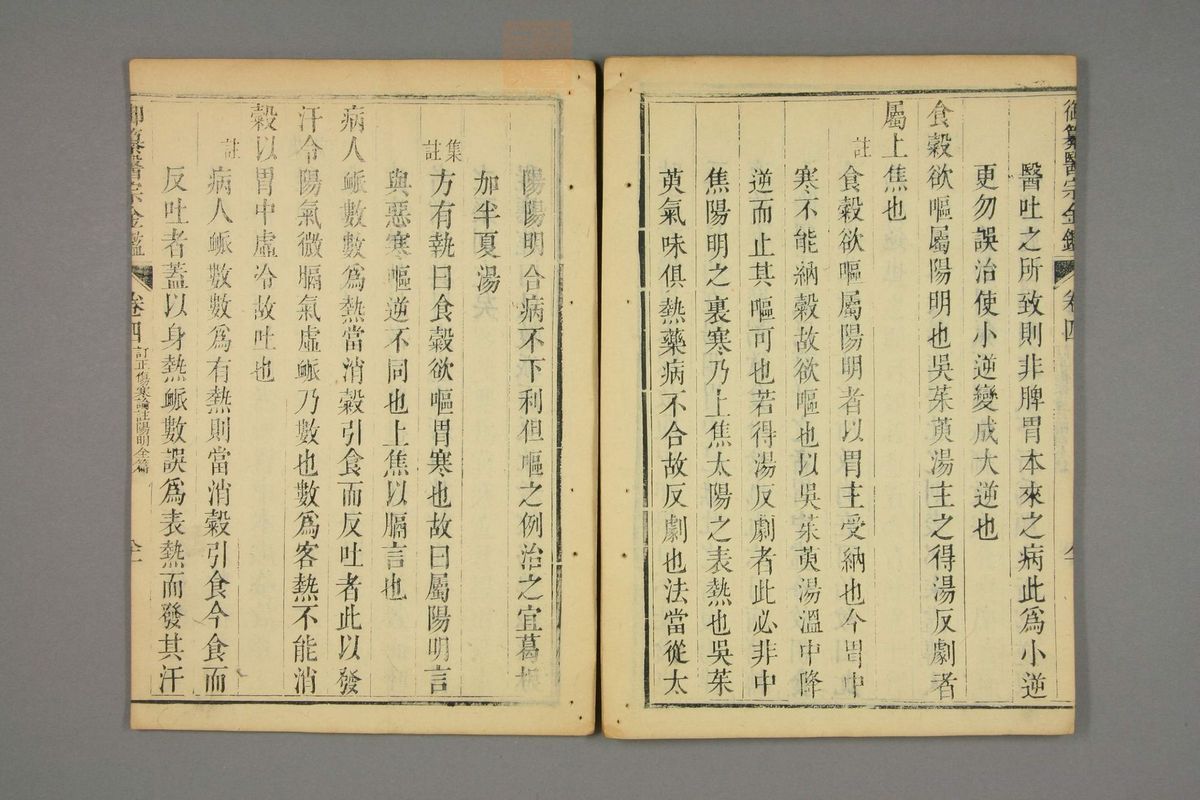 御纂醫宗金鑑 卷四
醫吐之所致則非脾胃本來之病此爲小逆
更勿誤治使小逆變成大逆也
食穀欲嘔屬陽明也吳茱萸湯主之得湯反劇者
屬上焦也
註 食穀欲嘔屬陽明者以胃主受納也今胃中
寒不能納穀故欲嘔也以吳茱萸湯溫中降
逆而止其嘔可也若得湯反劇者此必非中
焦陽明之裏寒乃上焦太陽之表熱也吳茱
萸氣味俱熱藥病不合故反劇也法當從太
陽陽明合病不下利但嘔之例治之宜葛根
加半夏湯
集註 方有執曰食穀欲嘔胃寒也故曰屬陽明言
與惡寒嘔逆不同也上焦以膈言也
病人脈數數爲熱當消穀引食而反吐者此以發
汗令陽氣微膈氣虛脈乃數也數爲客熱不能消
穀以胃中虛冷故吐也
註 病人脈數數爲有熱則當消穀引食今食而
反吐者蓋以身熱脈數誤爲表熱而發其汗
御纂醫宗金鑑 卷四 訂正傷寒論註陽明全篇